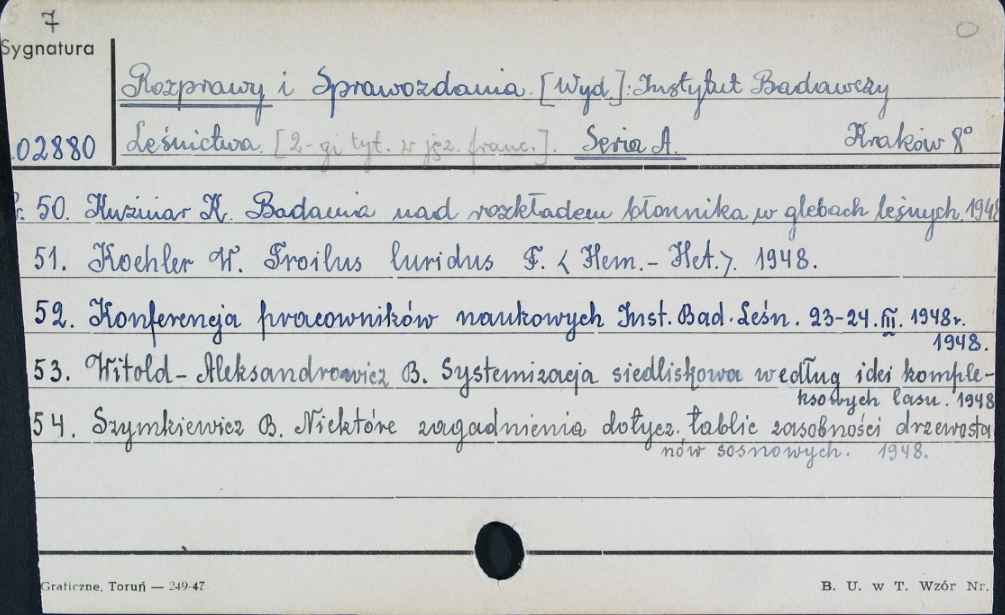 7
Sygnatura
Rozprawy i Sprawozdania. [Wyd.]: Instytut Badawczy
02880 Leśnictwa. [2-gi tyt. w jęz. franc.]. Seria A. Kraków 8°
50. Kuźniar K. Badania nad rozkładem błonnika w glebach leśnych. 1948
51. Koehler W. Troilus luridus F. < Hem. - Het.>. 1948.
52. Konferencja pracowników naukowych Inst. Bad. Leśn. 23-24.III. 1948r.
1948.
53. Witold-Aleksandrowicz B. Systemizacja siedliskowa według idei komple-
ksowych lasu. 1948
54. Szymkiewicz B. Niektóre zagadnienia dotycz. tablic zasobności drzewosta
nów sosnowych. 1948.
Graficzne, Toruń — 249-47 B. U. w T. Wzór Nr.